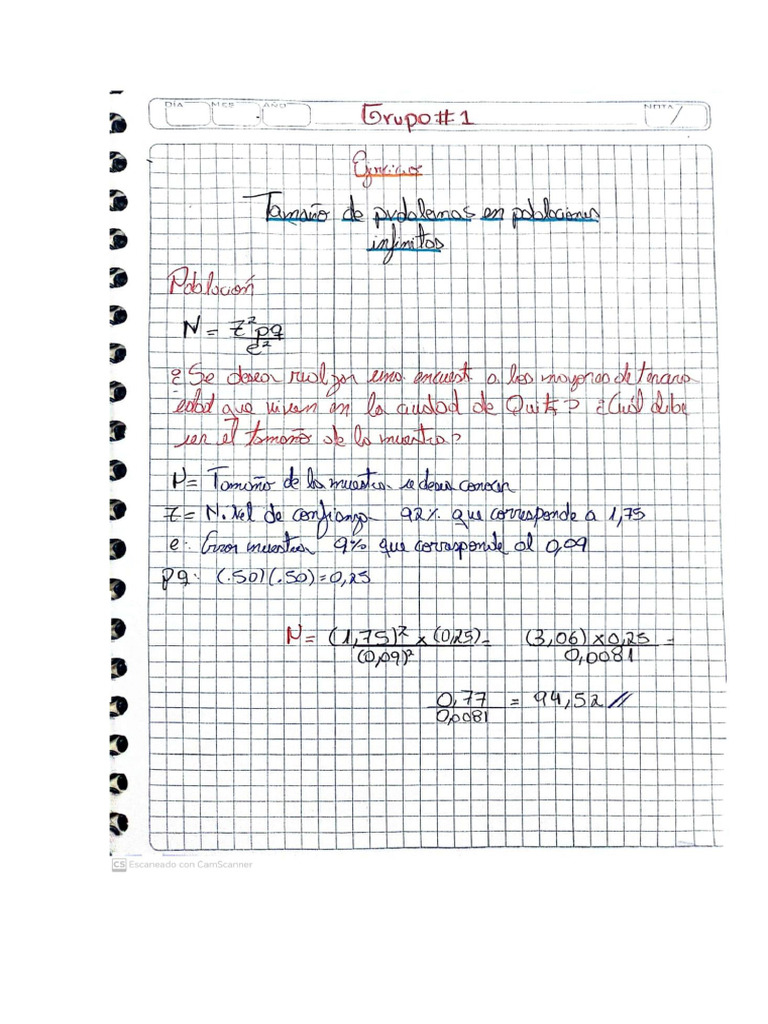 DÍA MES AÑO Grupo#1 NOTA /
Ejercicios
Tamaño de problemas en poblaciones
infinitos
Población
N = Z²pq / e²
¿Se desea realizar una encuest a los mayores de tercera
edad que viven en la ciudad de Quito? ¿Cuál debe
ser el tamaño de la muestra?
N = Tamaño de la muestra se desea conocer
Z = Nivel de confianza 92% que corresponde a 1,75
e: Error muestra 9% que corresponde al 0,09
pq: (.50)(.50)=0,25
N = (1,75)² x (0,25) / (0,09)² = (3,06) x 0,25 / 0,0081 =
0,77 / 0,0081 = 94,52 //
CS Escaneado con CamScanner